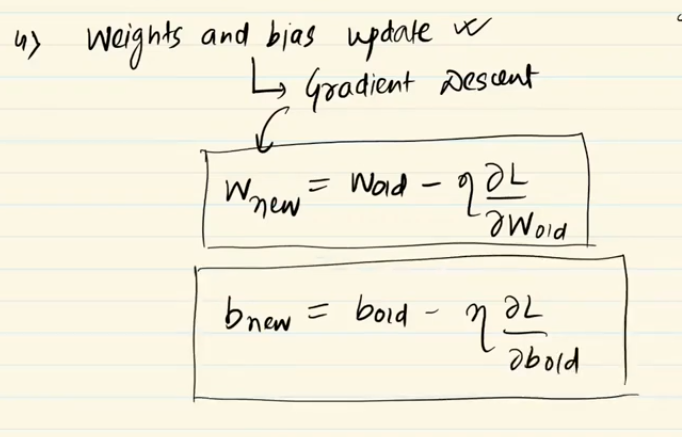 4) Weights and bias update
↳ Gradient Descent
W_new = W_old - η ∂L/∂W_old
b_new = b_old - η ∂L/∂b_old